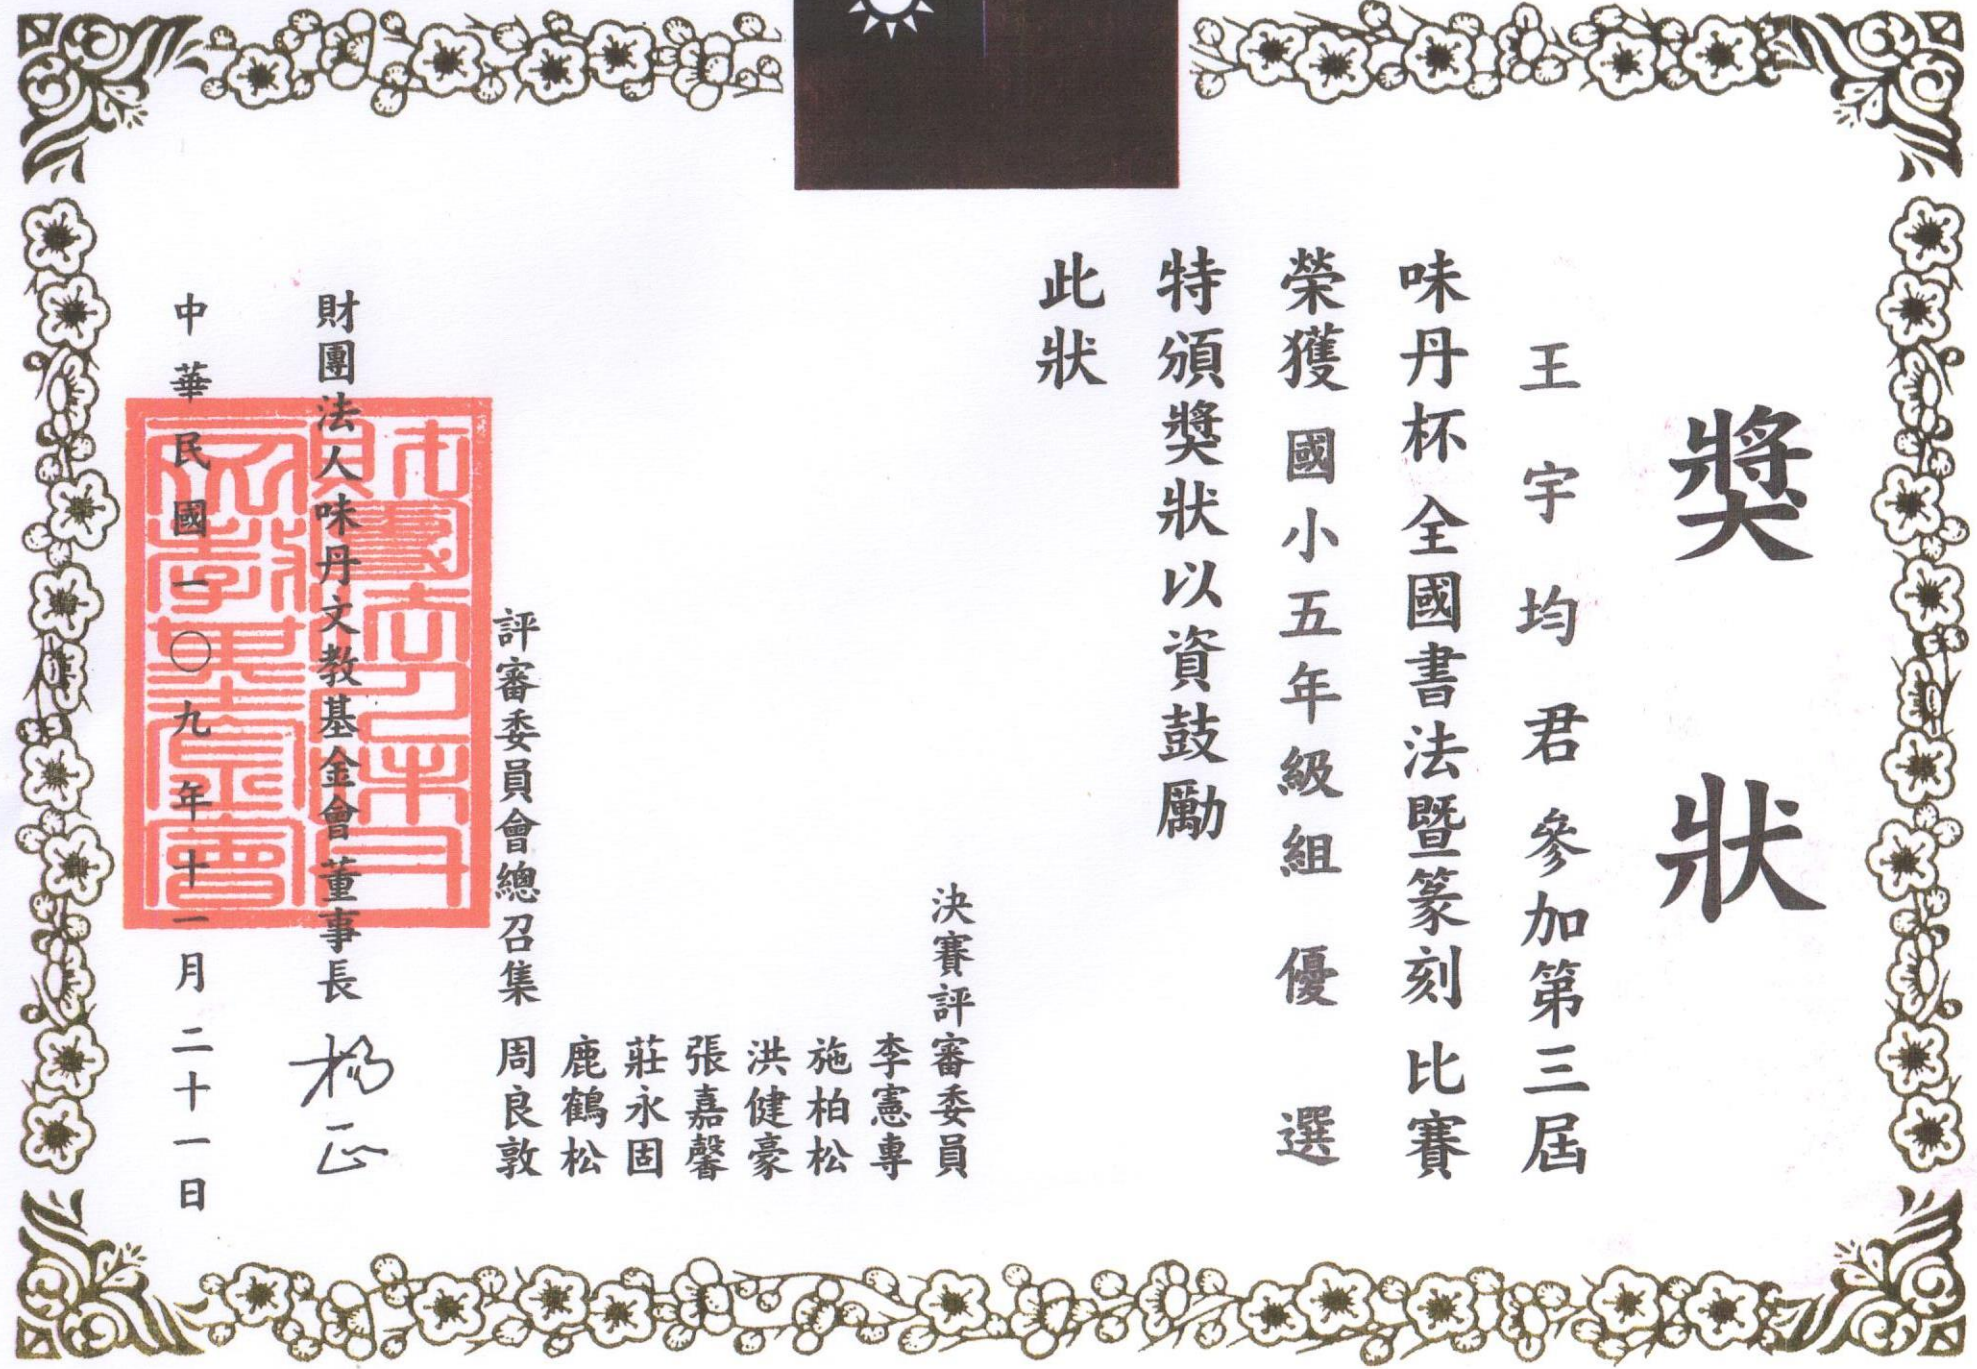 獎狀
王宇均君參加第三屆
味丹杯全國書法暨篆刻比賽
榮獲國小五年級組優選
特頒獎狀以資鼓勵
此狀
決賽評審委員
李憲專
施柏松
洪健豪
張嘉馨
莊永固
鹿鶴松
評審委員會總召集 周良敦
財團法人味丹文教基金會董事長 楊正
中華民國一〇九年十一月二十一日
財團法人味丹文教基金會